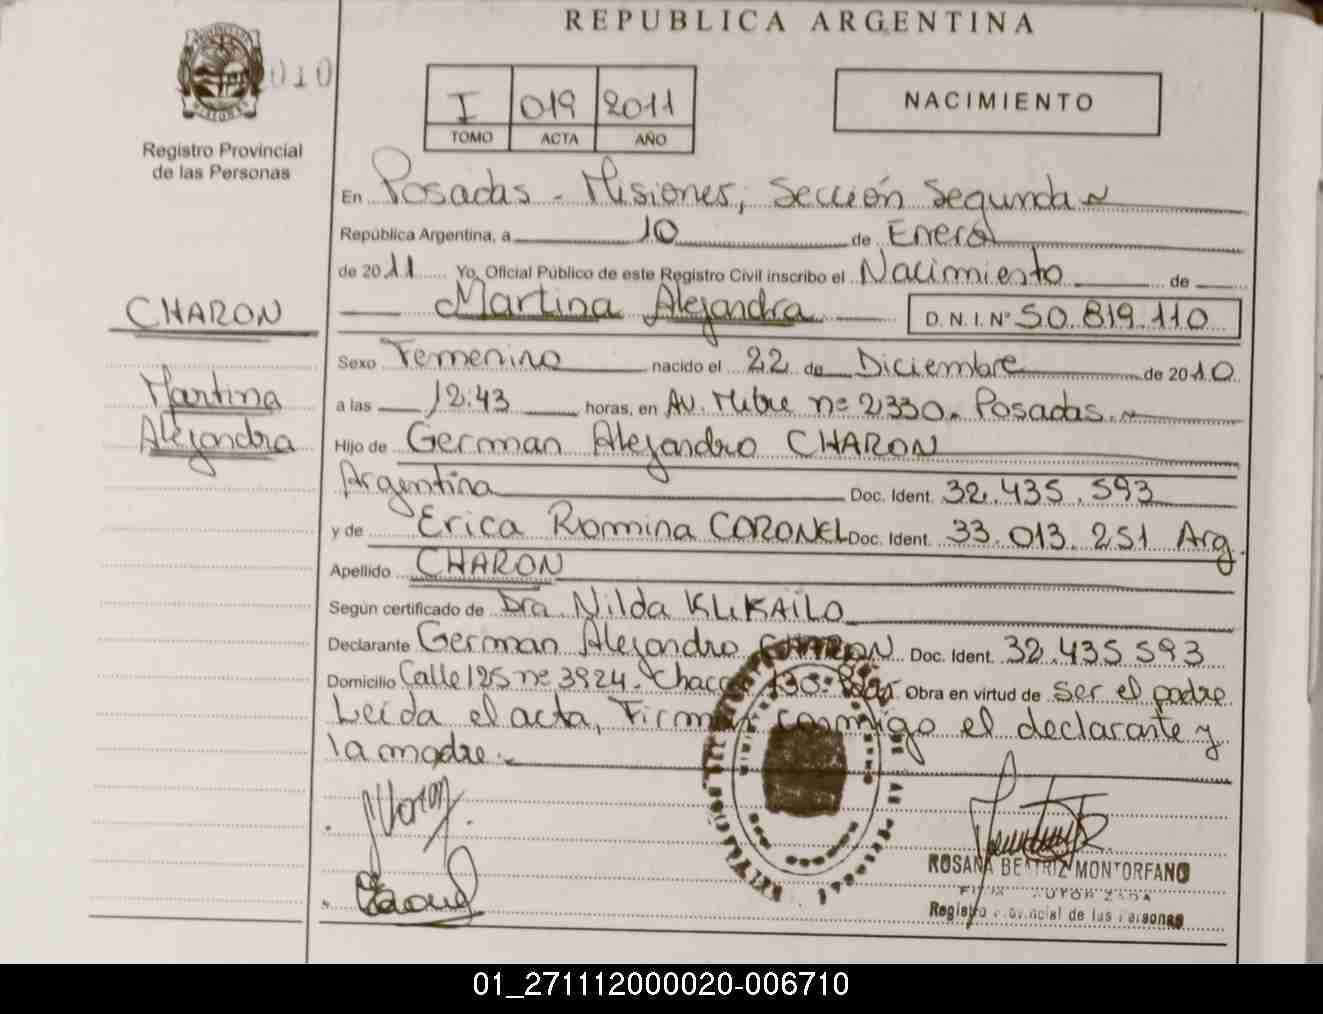 REPUBLICA ARGENTINA
010
Registro Provincial
de las Personas
I 019 2011
TOMO ACTA AÑO
NACIMIENTO
En Posadas - Misiones, Sección Segunda
República Argentina, a 10 de Enero
de 2011 Yo, Oficial Público de este Registro Civil inscribo el Nacimiento de
Martina Alejandra D. N. I. N° 50.819.110
CHARON
Martina
Alejandra
Sexo Femenino nacido el 22 de Diciembre de 2010
a las 12:43 horas, en Av. Mitre nº 2330. Posadas.
Hijo de German Alejandro CHARON
Argentina Doc. Ident. 32.435.593
y de Erica Romina CORONEL Doc. Ident. 33.013.251 Arg.
Apellido CHARON
Según certificado de Dra Nilda KLIKAILO
Declarante German Alejandro CHARON Doc. Ident. 32.435.593
Domicilio Calle 125 nº 3924. Obra en virtud de ser el padre
Leída el acta, Firman conmigo el declarante y
la madre.
ROSANA BEATRIZ MONTORFANO
FIRMA AUTORIZADA
Registro Provincial de las Personas
01_271112000020-006710